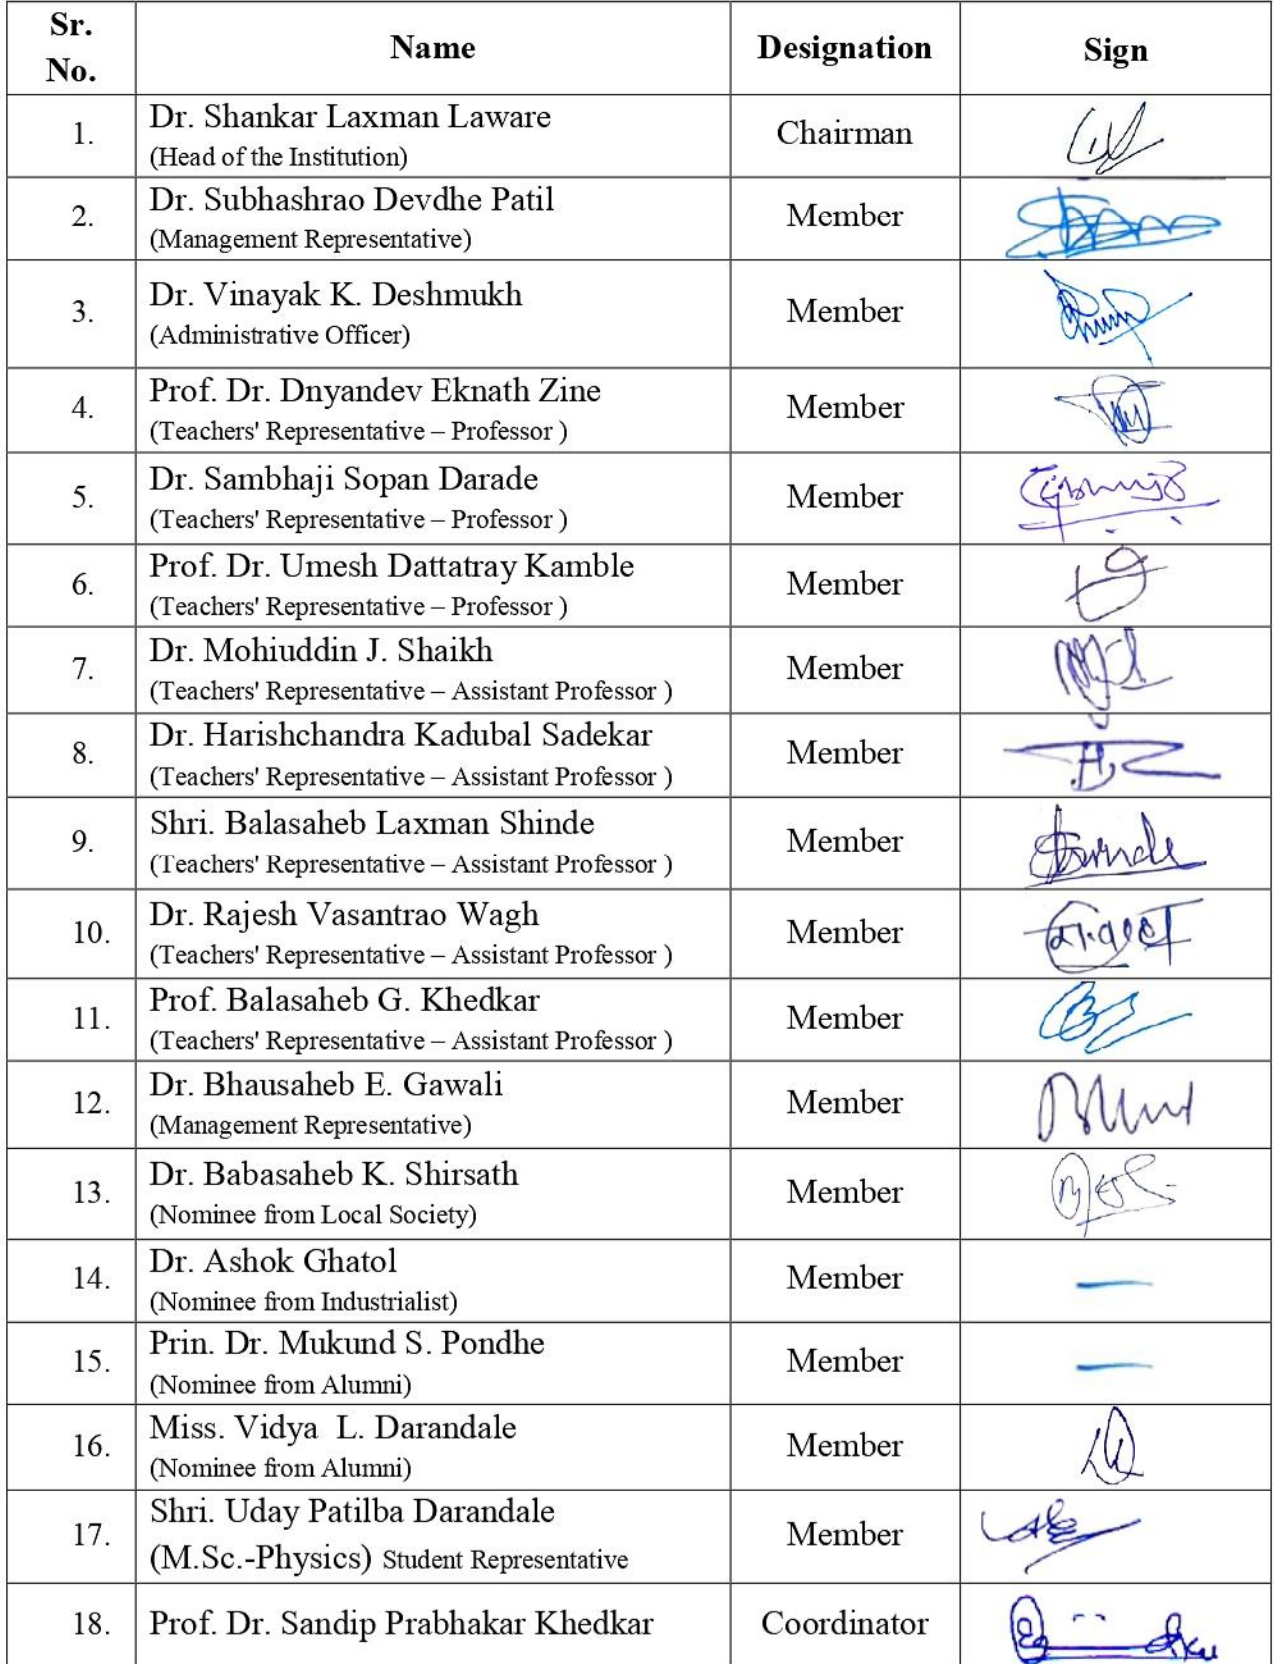 Sr. No.
Name
Designation
Sign
1.
Dr. Shankar Laxman Laware
(Head of the Institution)
Chairman
2.
Dr. Subhashrao Devdhe Patil
(Management Representative)
Member
3.
Dr. Vinayak K. Deshmukh
(Administrative Officer)
Member
4.
Prof. Dr. Dnyandev Eknath Zine
(Teachers' Representative – Professor )
Member
5.
Dr. Sambhaji Sopan Darade
(Teachers' Representative – Professor )
Member
6.
Prof. Dr. Umesh Dattatray Kamble
(Teachers' Representative – Professor )
Member
7.
Dr. Mohiuddin J. Shaikh
(Teachers' Representative – Assistant Professor )
Member
8.
Dr. Harishchandra Kadubal Sadekar
(Teachers' Representative – Assistant Professor )
Member
9.
Shri. Balasaheb Laxman Shinde
(Teachers' Representative – Assistant Professor )
Member
10.
Dr. Rajesh Vasantrao Wagh
(Teachers' Representative – Assistant Professor )
Member
11.
Prof. Balasaheb G. Khedkar
(Teachers' Representative – Assistant Professor )
Member
12.
Dr. Bhausaheb E. Gawali
(Management Representative)
Member
13.
Dr. Babasaheb K. Shirsath
(Nominee from Local Society)
Member
14.
Dr. Ashok Ghatol
(Nominee from Industrialist)
Member
15.
Prin. Dr. Mukund S. Pondhe
(Nominee from Alumni)
Member
16.
Miss. Vidya  L. Darandale
(Nominee from Alumni)
Member
17.
Shri. Uday Patilba Darandale
(M.Sc.-Physics) Student Representative
Member
18.
Prof. Dr. Sandip Prabhakar Khedkar
Coordinator